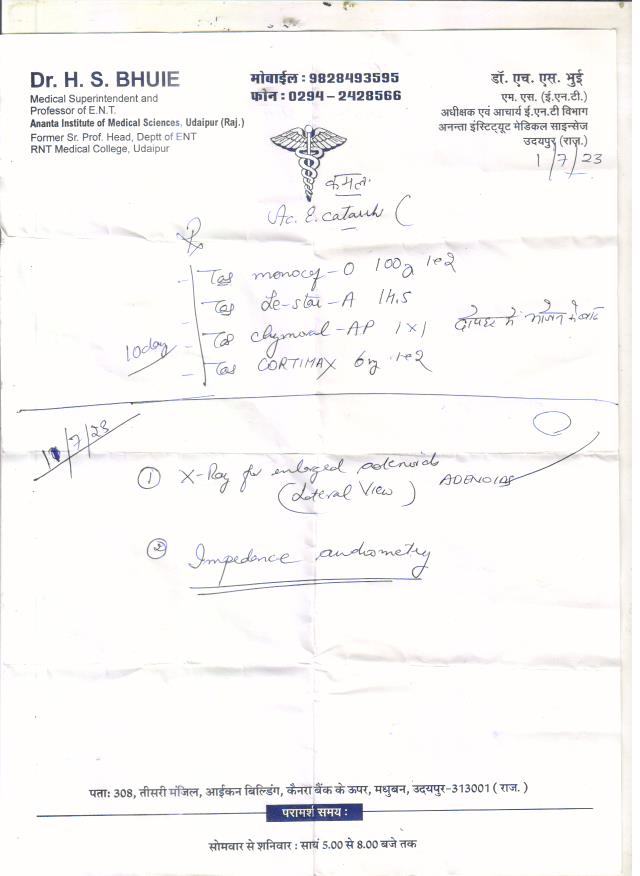 Dr. H. S. BHUIE
Medical Superintendent and
Professor of E.N.T.
Ananta Institute of Medical Sciences, Udaipur (Raj.)
Former Sr. Prof. Head, Deptt of ENT
RNT Medical College, Udaipur
मोबाईल : 9828493595
फोन : 0294-2428566
डॉ. एच. एस. भुई
एम. एस. (ई.एन.टी.)
अधीक्षक एवं आचार्य ई.एन.टी विभाग
अनन्ता इंस्टिट्यूट मेडिकल साइन्सेज
उदयपुर (राज.)
1/7/23
कमल
Ac. E. catarrh (
Rx
Tab monocef-O 100g 1e2
Tab Le-star-A 1H.S
Tab chymoral-AP 1x1 दोपहर में भोजन के बाद
10 day Tab CORTIMAX 6mg 1e2
11/7/23
① X-Ray for enlarged adenoids
(Lateral View) ADENOIDS
② Impedence audiometry
पता: 308, तीसरी मंजिल, आईकन बिल्डिंग, कैनरा बैंक के ऊपर, मधुबन, उदयपुर-313001 ( राज. )
परामर्श समय :
सोमवार से शनिवार : सायं 5.00 से 8.00 बजे तक